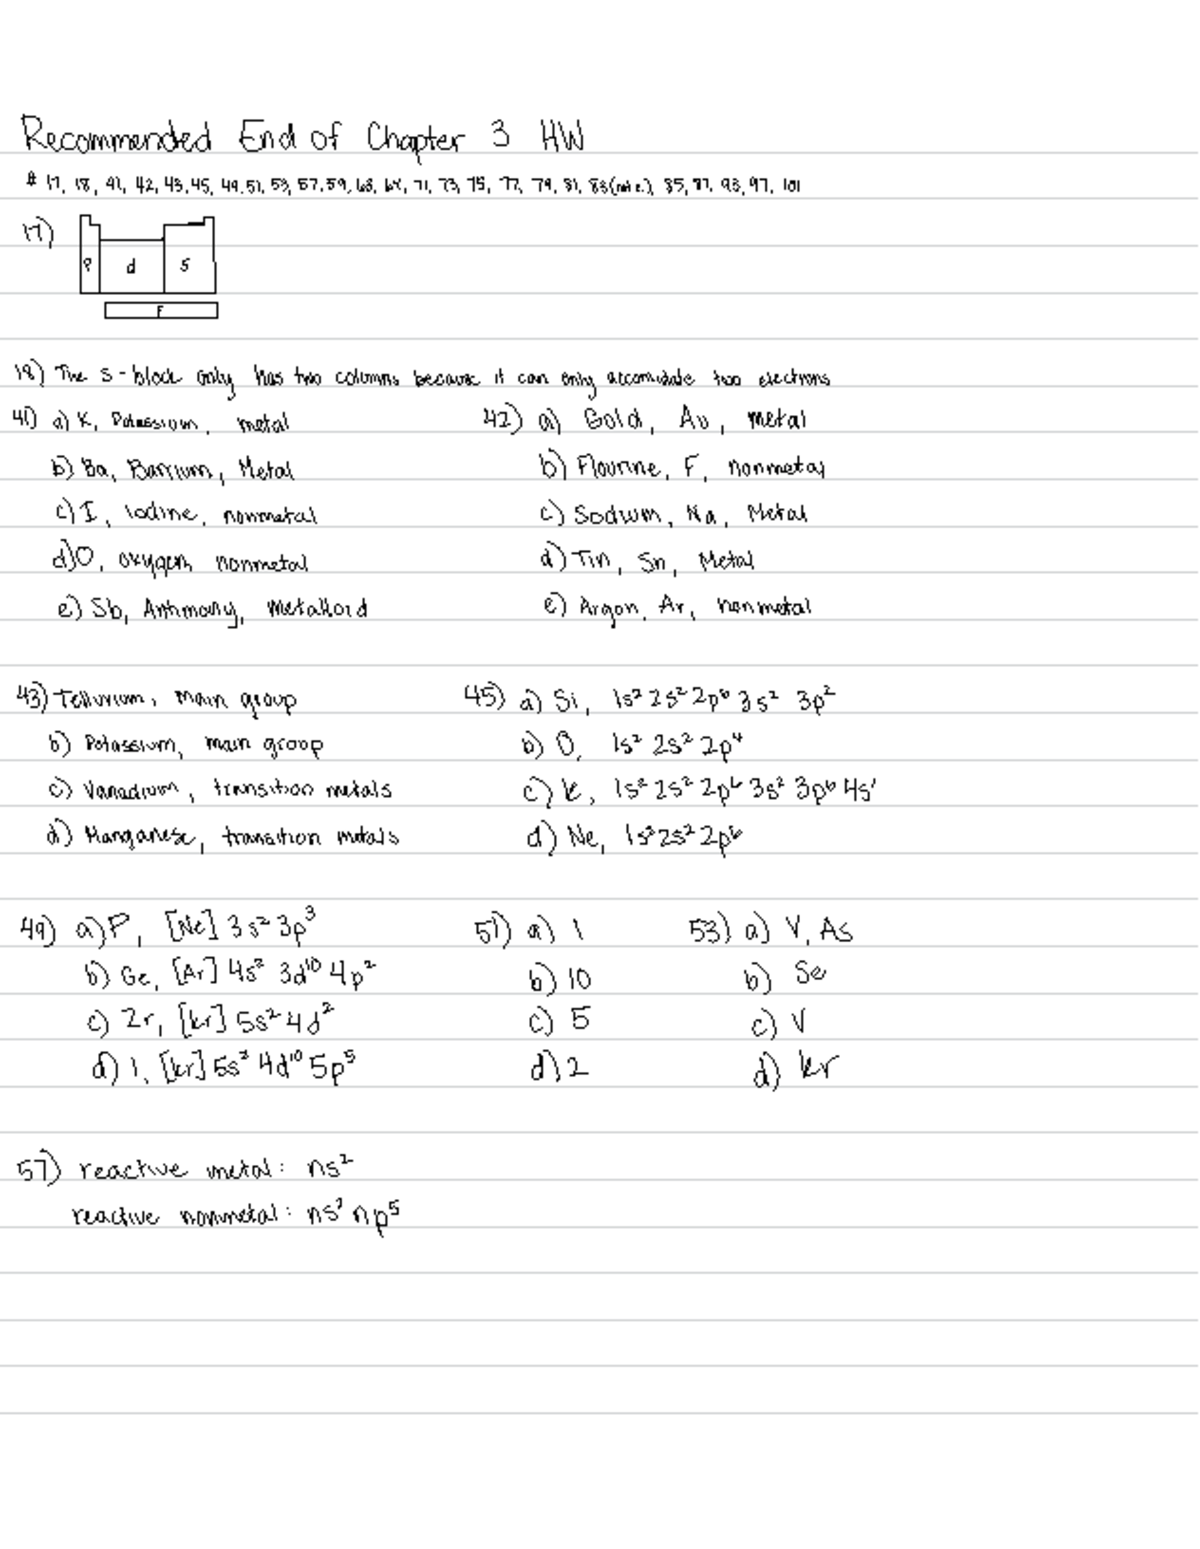 Recommended End of Chapter 3 HW
# 17, 18, 41, 42, 43, 45, 49, 51, 53, 57, 59, 63, 64, 71, 73, 75, 77, 79, 81, 83 85, 87, 93, 97, 101
17)
P d S
F
18) The s-block only has two columns because it can only accomidate two electrons
41) a) K, Potassium, metal
b) Ba, Barium, Metal
c) I, Iodine, nonmetal
d) O, oxygen, nonmetal
e) Sb, Antimony, metalloid
42) a) Gold, Au, metal
b) Flourine, F, nonmetal
c) Sodium, Na, Metal
d) Tin, Sn, Metal
e) Argon, Ar, nonmetal
43) Tellurium, main group
b) Potassium, main group
c) Vanadium, transition metals
d) Manganese, transition metals
45) a) Si, 1s² 2s² 2p⁶ 3s² 3p²
b) O, 1s² 2s² 2p⁴
c) K, 1s² 2s² 2p⁶ 3s² 3p⁶ 4s¹
d) Ne, 1s² 2s² 2p⁶
49) a) P, [Ne] 3s² 3p³
b) Ge, [Ar] 4s² 3d¹⁰ 4p²
c) Zr, [Kr] 5s² 4d²
d) I, [Kr] 5s² 4d¹⁰ 5p⁵
51) a) 1
b) 10
c) 5
d) 2
53) a) V, As
b) Se
c) V
d) Kr
57) reactive metal: ns²
reactive nonmetal: ns² np⁵